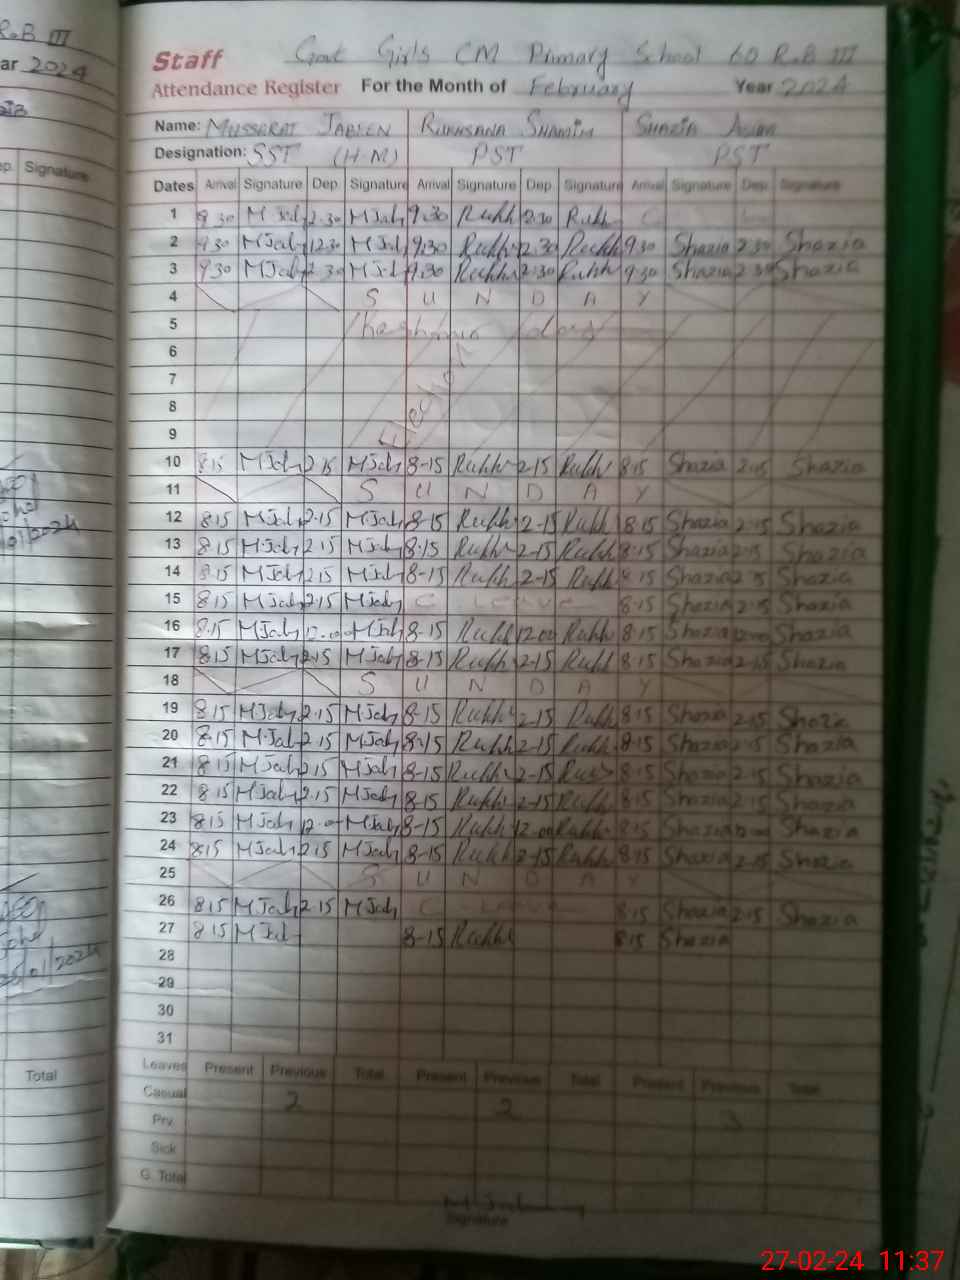 R.B III
ar 2024
ep. Signature
Total
Staff Govt Girls CM Primary School 60 R.B III
Attendance Register For the Month of February Year 2024
Name: MUSSERAT JABEEN RUKHSANA SHAMIM SHAZIA ASLAM
Designation: SST (H.M) PST PST
Dates Arrival Signature Dep. Signature Arrival Signature Dep. Signature Arrival Signature Dep. Signature
1 9.30 M Jab 2.30 M Jab 9.30 Rukh 2.30 Rukh C
2 9.30 M Jab 12.30 M Jab 9.30 Rukh 2.30 Rukh 9.30 Shazia 2.30 Shazia
3 9.30 M Jab 2.30 M Jab 9.30 Rukh 2.30 Rukh 9.30 Shazia 2.30 Shazia
4 S U N D A Y
5 Kashmir day
6
7
8
9
Election
10 8.15 M Jab 2.15 M Jab 8-15 Rukh 2-15 Rukh 8.15 Shazia 2.15 Shazia
11 S U N D A Y
12 8.15 M Jab 2.15 M Jab 8-15 Rukh 2-15 Rukh 8.15 Shazia 2.15 Shazia
13 8.15 M Jab 2.15 M Jab 8-15 Rukh 2-15 Rukh 8.15 Shazia 2.15 Shazia
14 8.15 M Jab 2.15 M Jab 8-15 Rukh 2-15 Rukh 8.15 Shazia 2.15 Shazia
15 8.15 M Jab 2.15 M Jab C - LEAVE 8.15 Shazia 2.15 Shazia
16 8.15 M Jab 12.00 M Jab 8-15 Rukh 12.00 Rukh 8.15 Shazia 12.00 Shazia
17 8.15 M Jab 2.15 M Jab 8-15 Rukh 2-15 Rukh 8.15 Shazia 2.15 Shazia
18 S U N D A Y
19 8.15 M Jab 2.15 M Jab 8-15 Rukh 2-15 Rukh 8.15 Shazia 2.15 Shazia
20 8.15 M Jab 2.15 M Jab 8-15 Rukh 2-15 Rukh 8.15 Shazia 2.15 Shazia
21 8.15 M Jab 2.15 M Jab 8-15 Rukh 2-15 8.15 Shazia 2.15 Shazia
22 8.15 M Jab 2.15 M Jab 8-15 Rukh 2-15 Rukh 8.15 Shazia 2.15 Shazia
23 8.15 M Jab 12.00 M Jab 8-15 Rukh 12.00 Rukh 8.15 Shazia 12.00 Shazia
24 8.15 M Jab 2.15 M Jab 8-15 Rukh 2-15 Rukh 8.15 Shazia 2.15 Shazia
25 S U N D A Y
26 8.15 M Jab 2.15 M Jab C - LEAVE 8.15 Shazia 2.15 Shazia
27 8.15 M Jab 8-15 Rukh 8.15 Shazia
28
29
30
31
Leaves Present Previous Total Present Previous Total Present Previous Total
Casual 2 2 3
Prv.
Sick
G. Total
M Jab
Signature
27-02-24 11:37